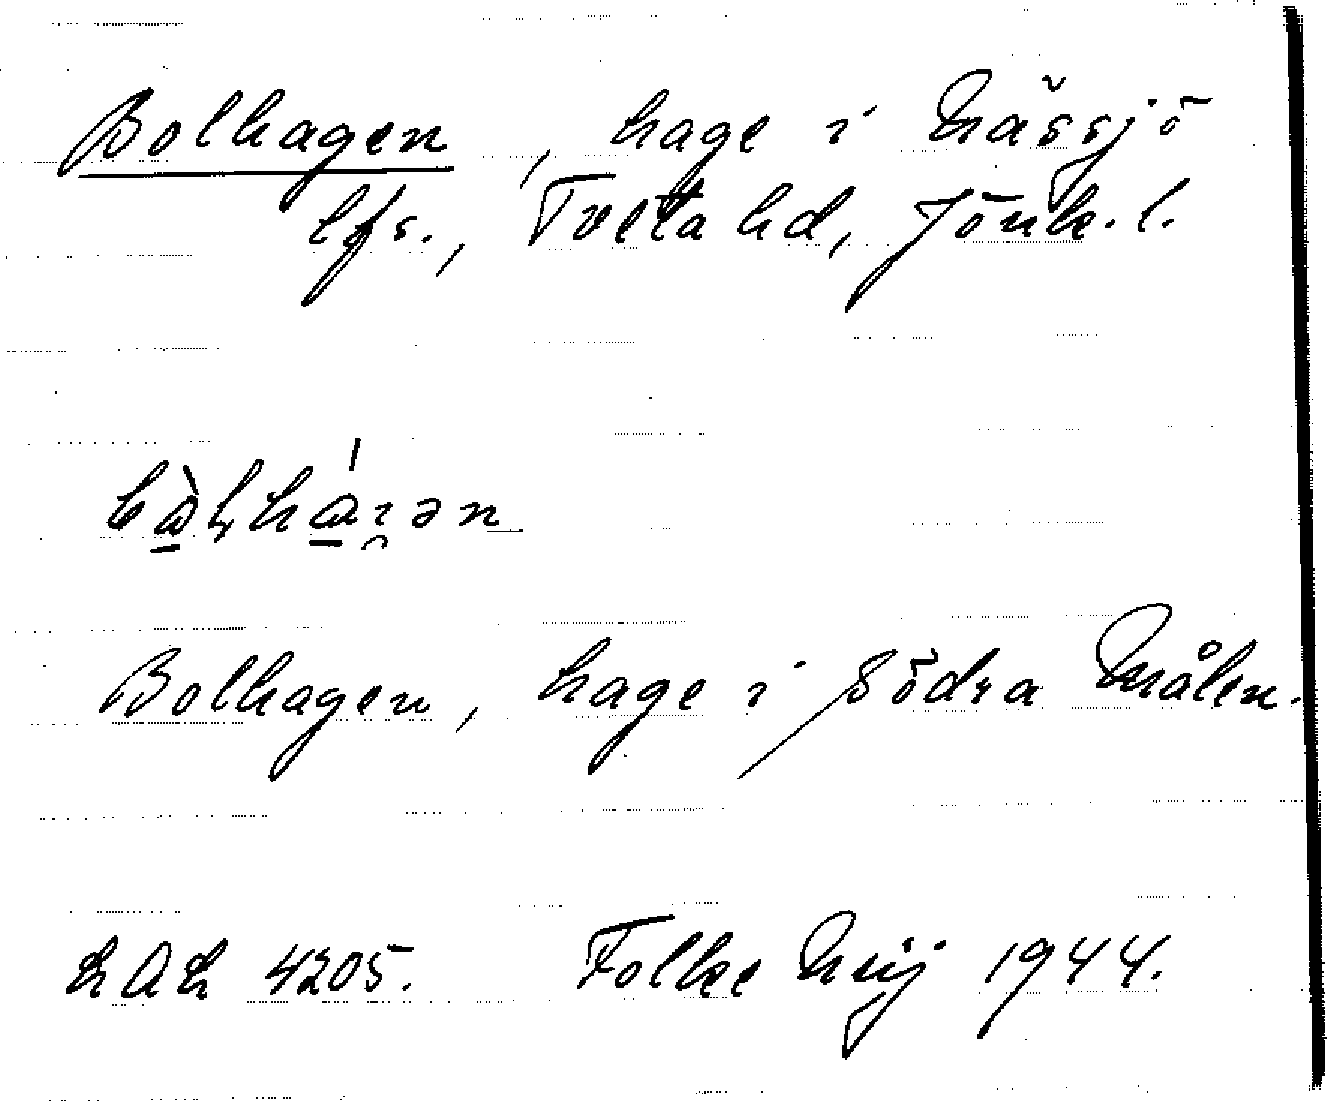 Bolhagen, hage i Nässjö
lfs., Tveta hd, Jönk. l.
Bolhagen, hage i Södra Målen.
4205. Folke 1944.